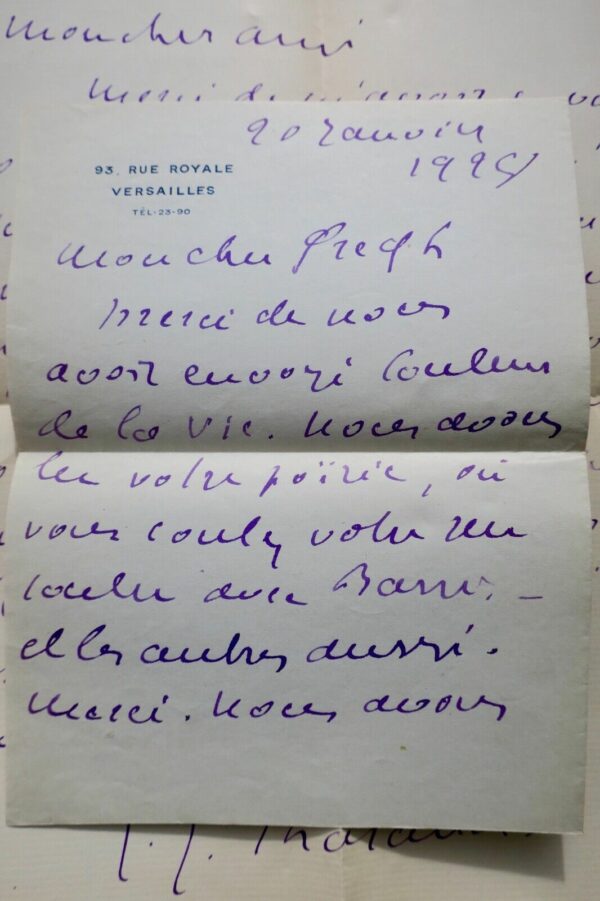 Mon cher ami
Merci de m'avoir
93, RUE ROYALE
VERSAILLES
TÉL-23-90
20 Janvier
192
Mon cher Gregh
Merci de nous
avoir envoyé Couleur
de la Vie. Nous avons
lu votre poésie, où
vous contez votre
avec Barrès. _
et les autres aussi.
Merci. Nous avons
J. J. Tharaud